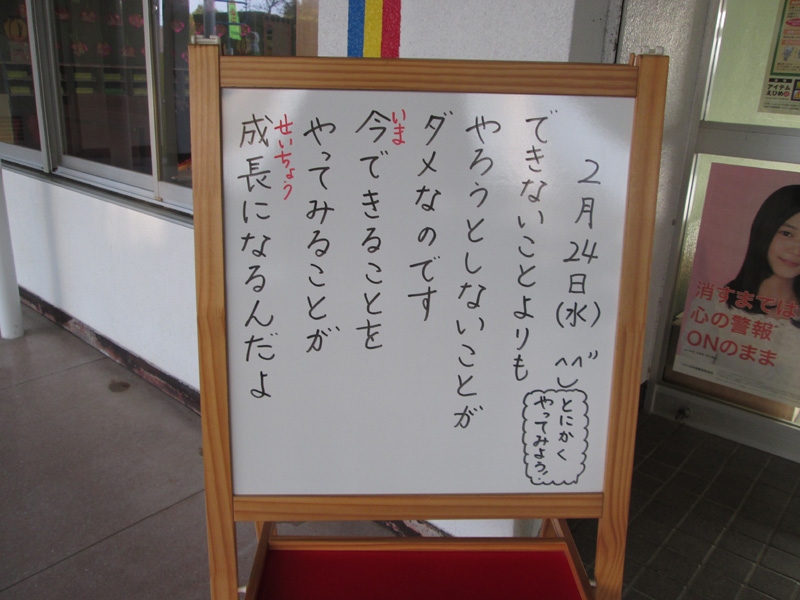 2月24日(水)
できないことよりも
やろうとしないことが
ダメなのです
今できることを
いま
やってみることが
成長になるんだよ
せいちょう
とにかく
やってみよう!
消すまでは
心の警報
ONのまま
アイテム
えひめ